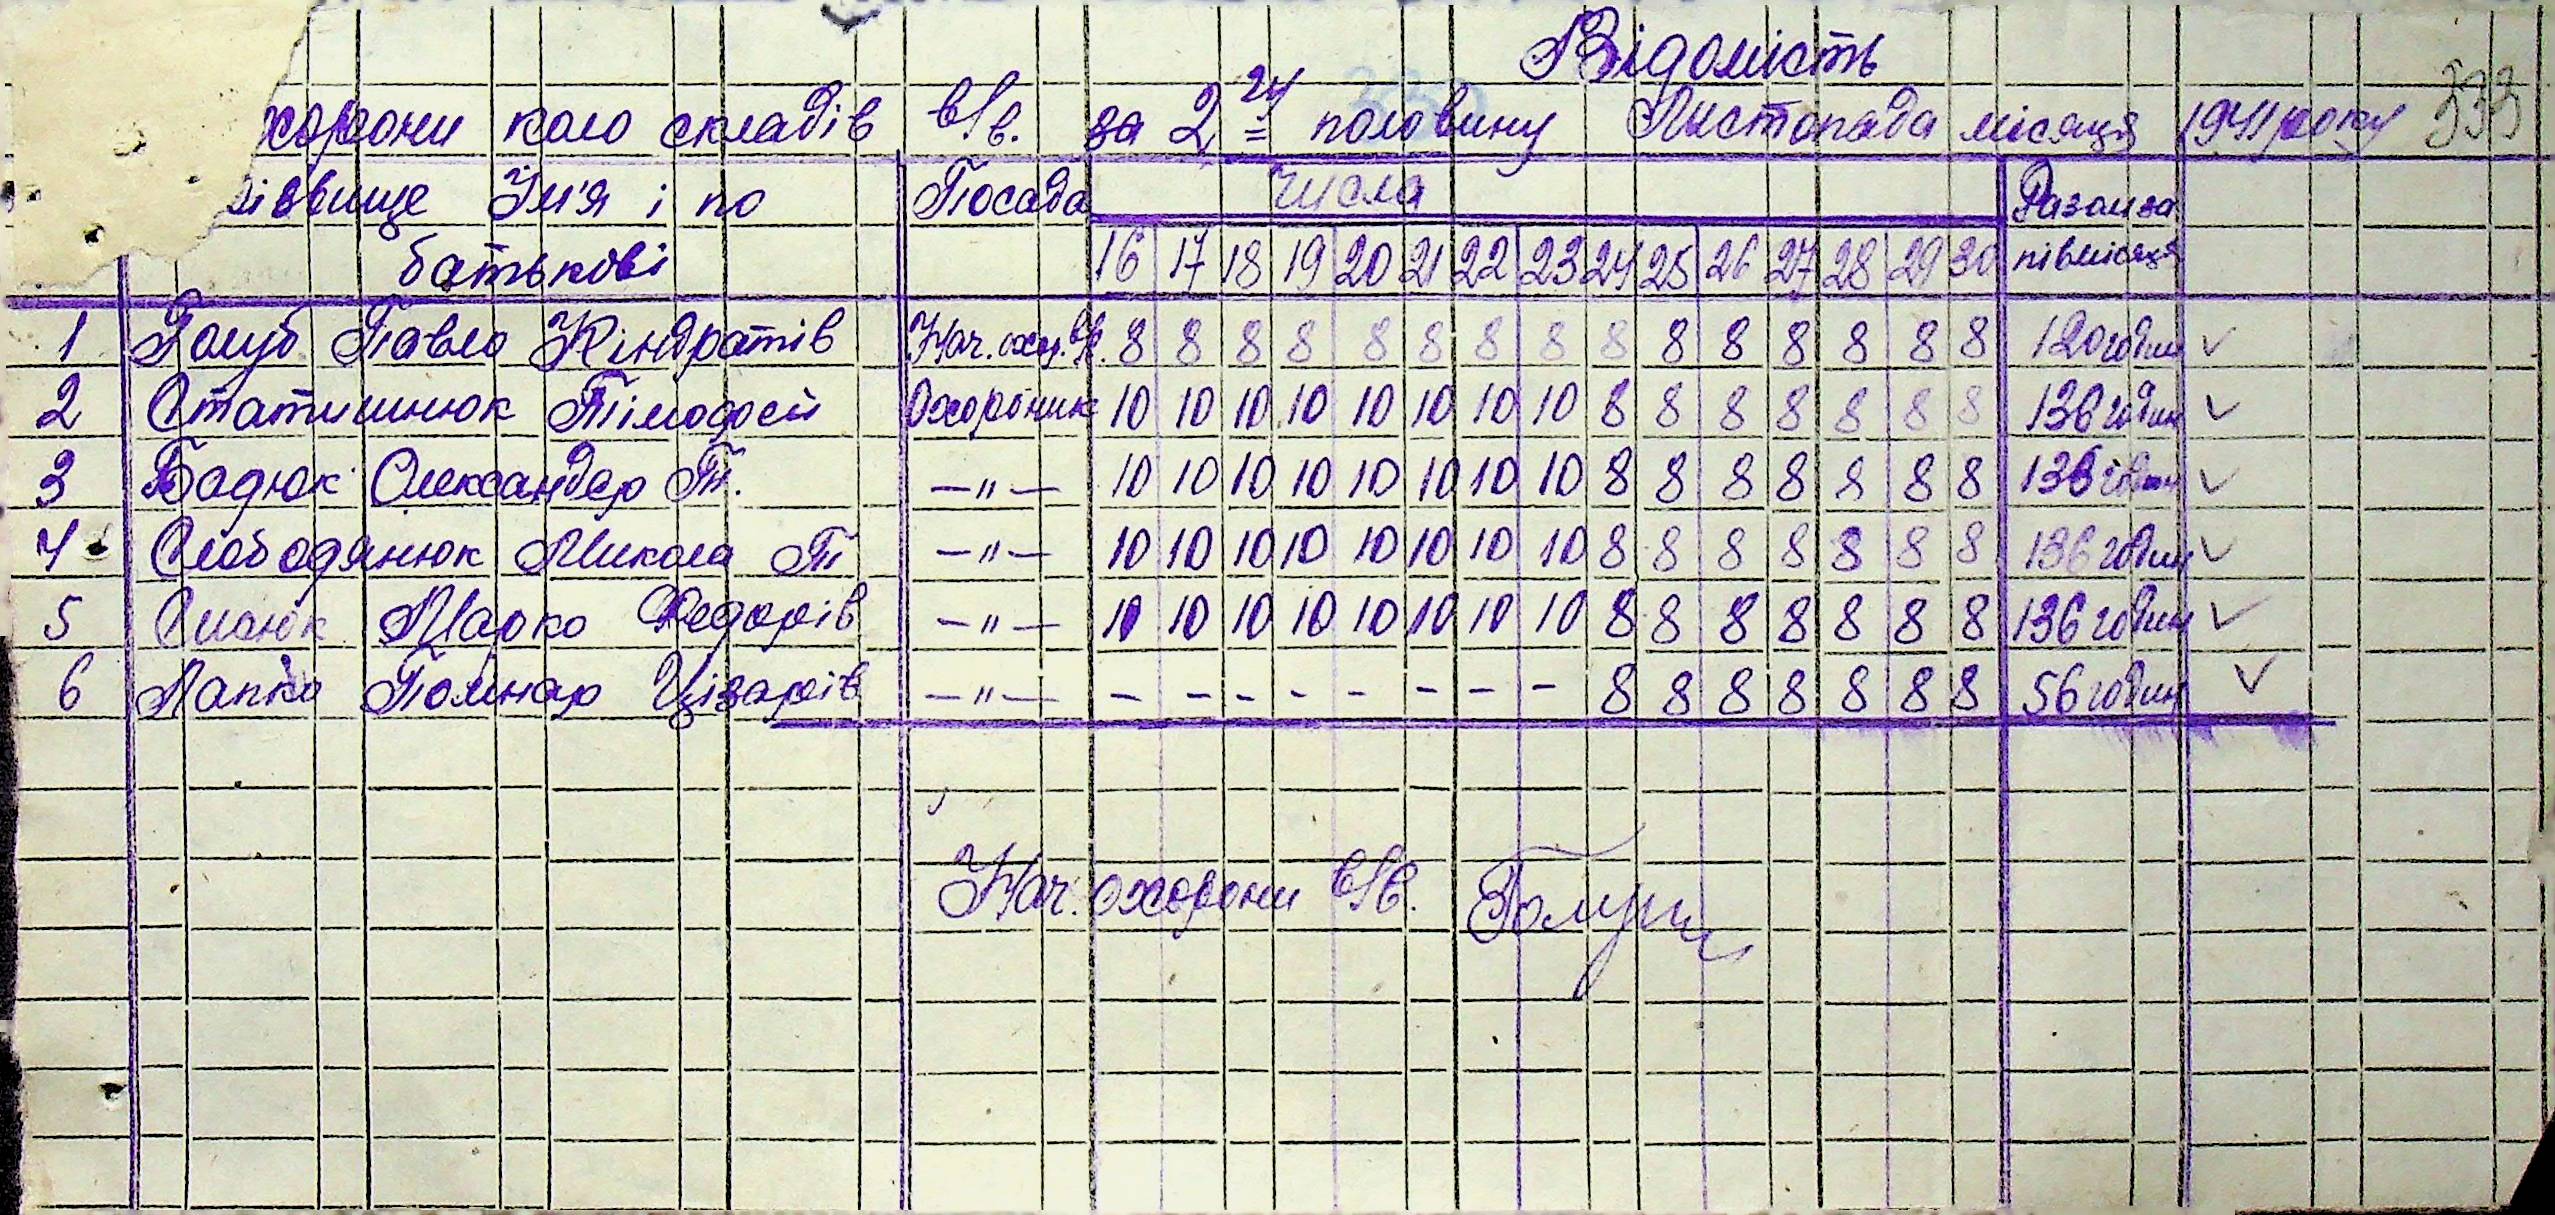 Відомість
хорони коло складів в/в. за 2гу половину Листопада місяця 1941 року 333
різвище Ім'я і по Посада Числа Разом за
батькові 16 17 18 19 20 21 22 23 24 25 26 27 28 29 30 півмісяця
1 Голуб Павло Кіндратів Нач. охор. в/в. 8 8 8 8 8 8 8 8 8 8 8 8 8 8 8 120 годин ✓
2 Статишнюк Тімофей Охоронник 10 10 10 10 10 10 10 10 8 8 8 8 8 8 8 136 годин ✓
3 Бадюк Олександер Т. —"— 10 10 10 10 10 10 10 10 8 8 8 8 8 8 8 136 годин ✓
4 Слободянюк Микола П —"— 10 10 10 10 10 10 10 10 8 8 8 8 8 8 8 136 годин ✓
5 Марко Федорів —"— 10 10 10 10 10 10 10 10 8 8 8 8 8 8 8 136 годин ✓
6 Лапко Цізарів —"— - - - - - - - - 8 8 8 8 8 8 8 56 годин ✓
Нач. охорони в/в.